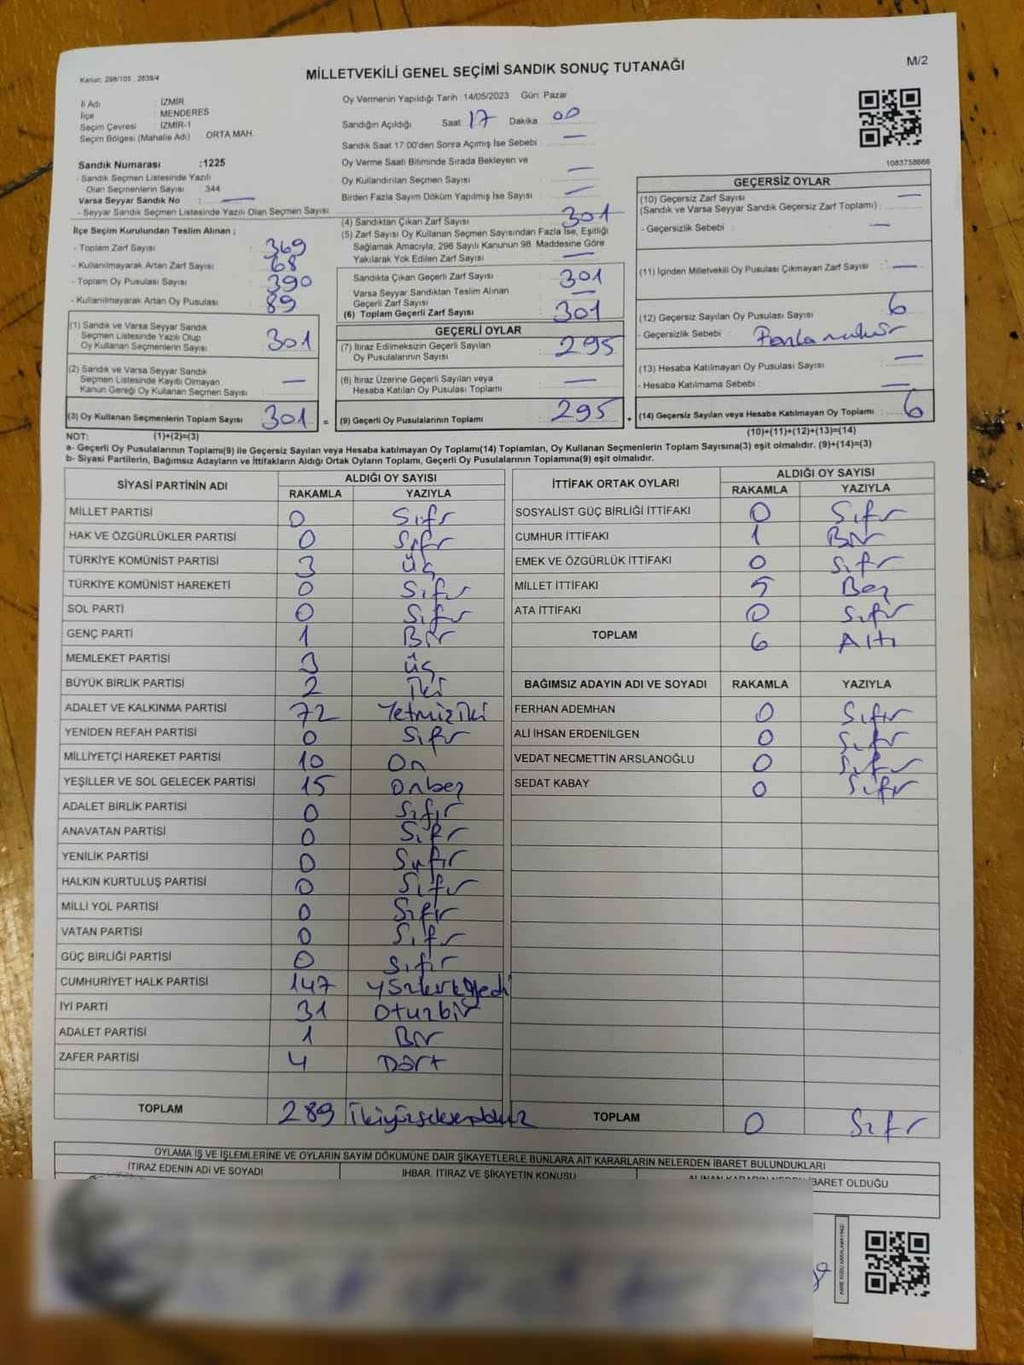 Kanun: 298/105 , 2839/4
MİLLETVEKİLİ GENEL SEÇİMİ SANDIK SONUÇ TUTANAĞI
M/2
İl Adı : İZMİR
İlçe : MENDERES
Seçim Çevresi : İZMİR-1
Seçim Bölgesi (Mahalle Adı) ORTA MAH.
Sandık Numarası :1225
- Sandık Seçmen Listesinde Yazılı
Olan Seçmenlerin Sayısı 344
Varsa Seyyar Sandık No : —
- Seyyar Sandık Seçmen Listesinde Yazılı Olan Seçmen Sayısı
Oy Vermenin Yapıldığı Tarih 14/05/2023 Gün: Pazar
Sandığın Açıldığı Saat 17 Dakika 00
Sandık Saat 17:00'den Sonra Açımış İse Sebebi —
Oy Verme Saati Bitiminde Sırada Bekleyen ve
Oy Kullandırılan Seçmen Sayısı —
Birden Fazla Sayım Döküm Yapılmış İse Sayısı —
1083758666
İlçe Seçim Kurulundan Teslim Alınan ;
- Toplam Zarf Sayısı 369
- Kullanılmayarak Artan Zarf Sayısı 68
- Toplam Oy Pusulası Sayısı 390
- Kullanılmayarak Artan Oy Pusulası 89
(1) Sandık ve Varsa Seyyar Sandık
Seçmen Listesinde Yazılı Olup
Oy Kullanan Seçmenlerin Sayısı 301
(2) Sandık ve Varsa Seyyar Sandık
Seçmen Listesinde Kayıtlı Olmayan
Kanun Gereği Oy Kullanan Seçmen Sayısı —
(3) Oy Kullanan Seçmenlerin Toplam Sayısı 301 =
(4) Sandıktan Çıkan Zarf Sayısı 301
(5) Zarf Sayısı Oy Kullanan Seçmen Sayısından Fazla İse, Eşitliği
Sağlamak Amacıyla, 298 Sayılı Kanunun 98. Maddesine Göre
Yakılarak Yok Edilen Zarf Sayısı —
Sandıkta Çıkan Geçerli Zarf Sayısı 301
Varsa Seyyar Sandıktan Teslim Alınan
Geçerli Zarf Sayısı —
(6) Toplam Geçerli Zarf Sayısı 301
GEÇERLİ OYLAR
(7) İtiraz Edilmeksizin Geçerli Sayılan
Oy Pusulalarının Sayısı 295
(8) İtiraz Üzerine Geçerli Sayılan veya
Hesaba Katılan Oy Pusulası Sayısı —
(9) Geçerli Oy Pusulalarının Toplamı 295 +
GEÇERSİZ OYLAR
(10) Geçersiz Zarf Sayısı
(Sandık ve Varsa Seyyar Sandık Geçersiz Zarf Toplamı) : —
- Geçersizlik Sebebi : —
(11) İçinden Milletvekili Oy Pusulası Çıkmayan Zarf Sayısı : —
(12) Geçersiz Sayılan Oy Pusulası Sayısı : 6
- Geçersizlik Sebebi :
(13) Hesaba Katılmayan Oy Pusulası Sayısı : —
- Hesaba Katılmama Sebebi : —
(14) Geçersiz Sayılan veya Hesaba Katılmayan Oy Toplamı : 6
NOT: (1)+(2)=(3)
(10)+(11)+(12)+(13)=(14)
a- Geçerli Oy Pusulalarının Toplamı(9) ile Geçersiz Sayılan veya Hesaba Katılmayan Oy Toplamı(14) Toplamları, Oy Kullanan Seçmenlerin Toplam Sayısına(3) eşit olmalıdır. (9)+(14)=(3)
b- Siyasi Partilerin, Bağımsız Adayların ve İttifakların Aldığı Ortak Oyların Toplamı, Geçerli Oy Pusulalarının Toplamına(9) eşit olmalıdır.
SİYASİ PARTİNİN ADI ALDIĞI OY SAYISI
RAKAMLA YAZIYLA
MİLLET PARTİSİ 0 Sıfır
HAK VE ÖZGÜRLÜKLER PARTİSİ 0 Sıfır
TÜRKİYE KOMÜNİST PARTİSİ 3 üç
TÜRKİYE KOMÜNİST HAREKETİ 0 Sıfır
SOL PARTİ 0 Sıfır
GENÇ PARTİ 1 Bir
MEMLEKET PARTİSİ 3 üç
BÜYÜK BİRLİK PARTİSİ 2 iki
ADALET VE KALKINMA PARTİSİ 72 Yetmişiki
YENİDEN REFAH PARTİSİ 0 Sıfır
MİLLİYETÇİ HAREKET PARTİSİ 10 On
YEŞİLLER VE SOL GELECEK PARTİSİ 15 Onbeş
ADALET BİRLİK PARTİSİ 0 Sıfır
ANAVATAN PARTİSİ 0 Sıfır
YENİLİK PARTİSİ 0 Sıfır
HALKIN KURTULUŞ PARTİSİ 0 Sıfır
MİLLİ YOL PARTİSİ 0 Sıfır
VATAN PARTİSİ 0 Sıfır
GÜÇ BİRLİĞİ PARTİSİ 0 Sıfır
CUMHURİYET HALK PARTİSİ 147 Yüzkırkyedi
İYİ PARTİ 31 Otuzbir
ADALET PARTİSİ 1 Bir
ZAFER PARTİSİ 4 Dört
TOPLAM 289 İkiyüzseksendokuz
İTTİFAK ORTAK OYLARI ALDIĞI OY SAYISI
RAKAMLA YAZIYLA
SOSYALİST GÜÇ BİRLİĞİ İTTİFAKI 0 Sıfır
CUMHUR İTTİFAKI 1 Bir
EMEK VE ÖZGÜRLÜK İTTİFAKI 0 Sıfır
MİLLET İTTİFAKI 5 Beş
ATA İTTİFAKI 0 Sıfır
TOPLAM 6 Altı
BAĞIMSIZ ADAYIN ADI VE SOYADI RAKAMLA YAZIYLA
FERHAN ADEMHAN 0 Sıfır
ALİ İHSAN ERDENİLGEN 0 Sıfır
VEDAT NECMETTİN ARSLANOĞLU 0 Sıfır
SEDAT KABAY 0 Sıfır
TOPLAM 0 Sıfır
OYLAMA İŞ VE İŞLEMLERİNE VE OYLARIN SAYIM DÖKÜMÜNE DAİR ŞİKAYETLERLE BUNLARA AİT KARARLARIN NELERDEN İBARET BULUNDUKLARI
İTİRAZ EDENİN ADI VE SOYADI
İHBAR, İTİRAZ VE ŞİKAYETİN KONUSU
ALINAN KARARIN NEDEN İBARET OLDUĞU